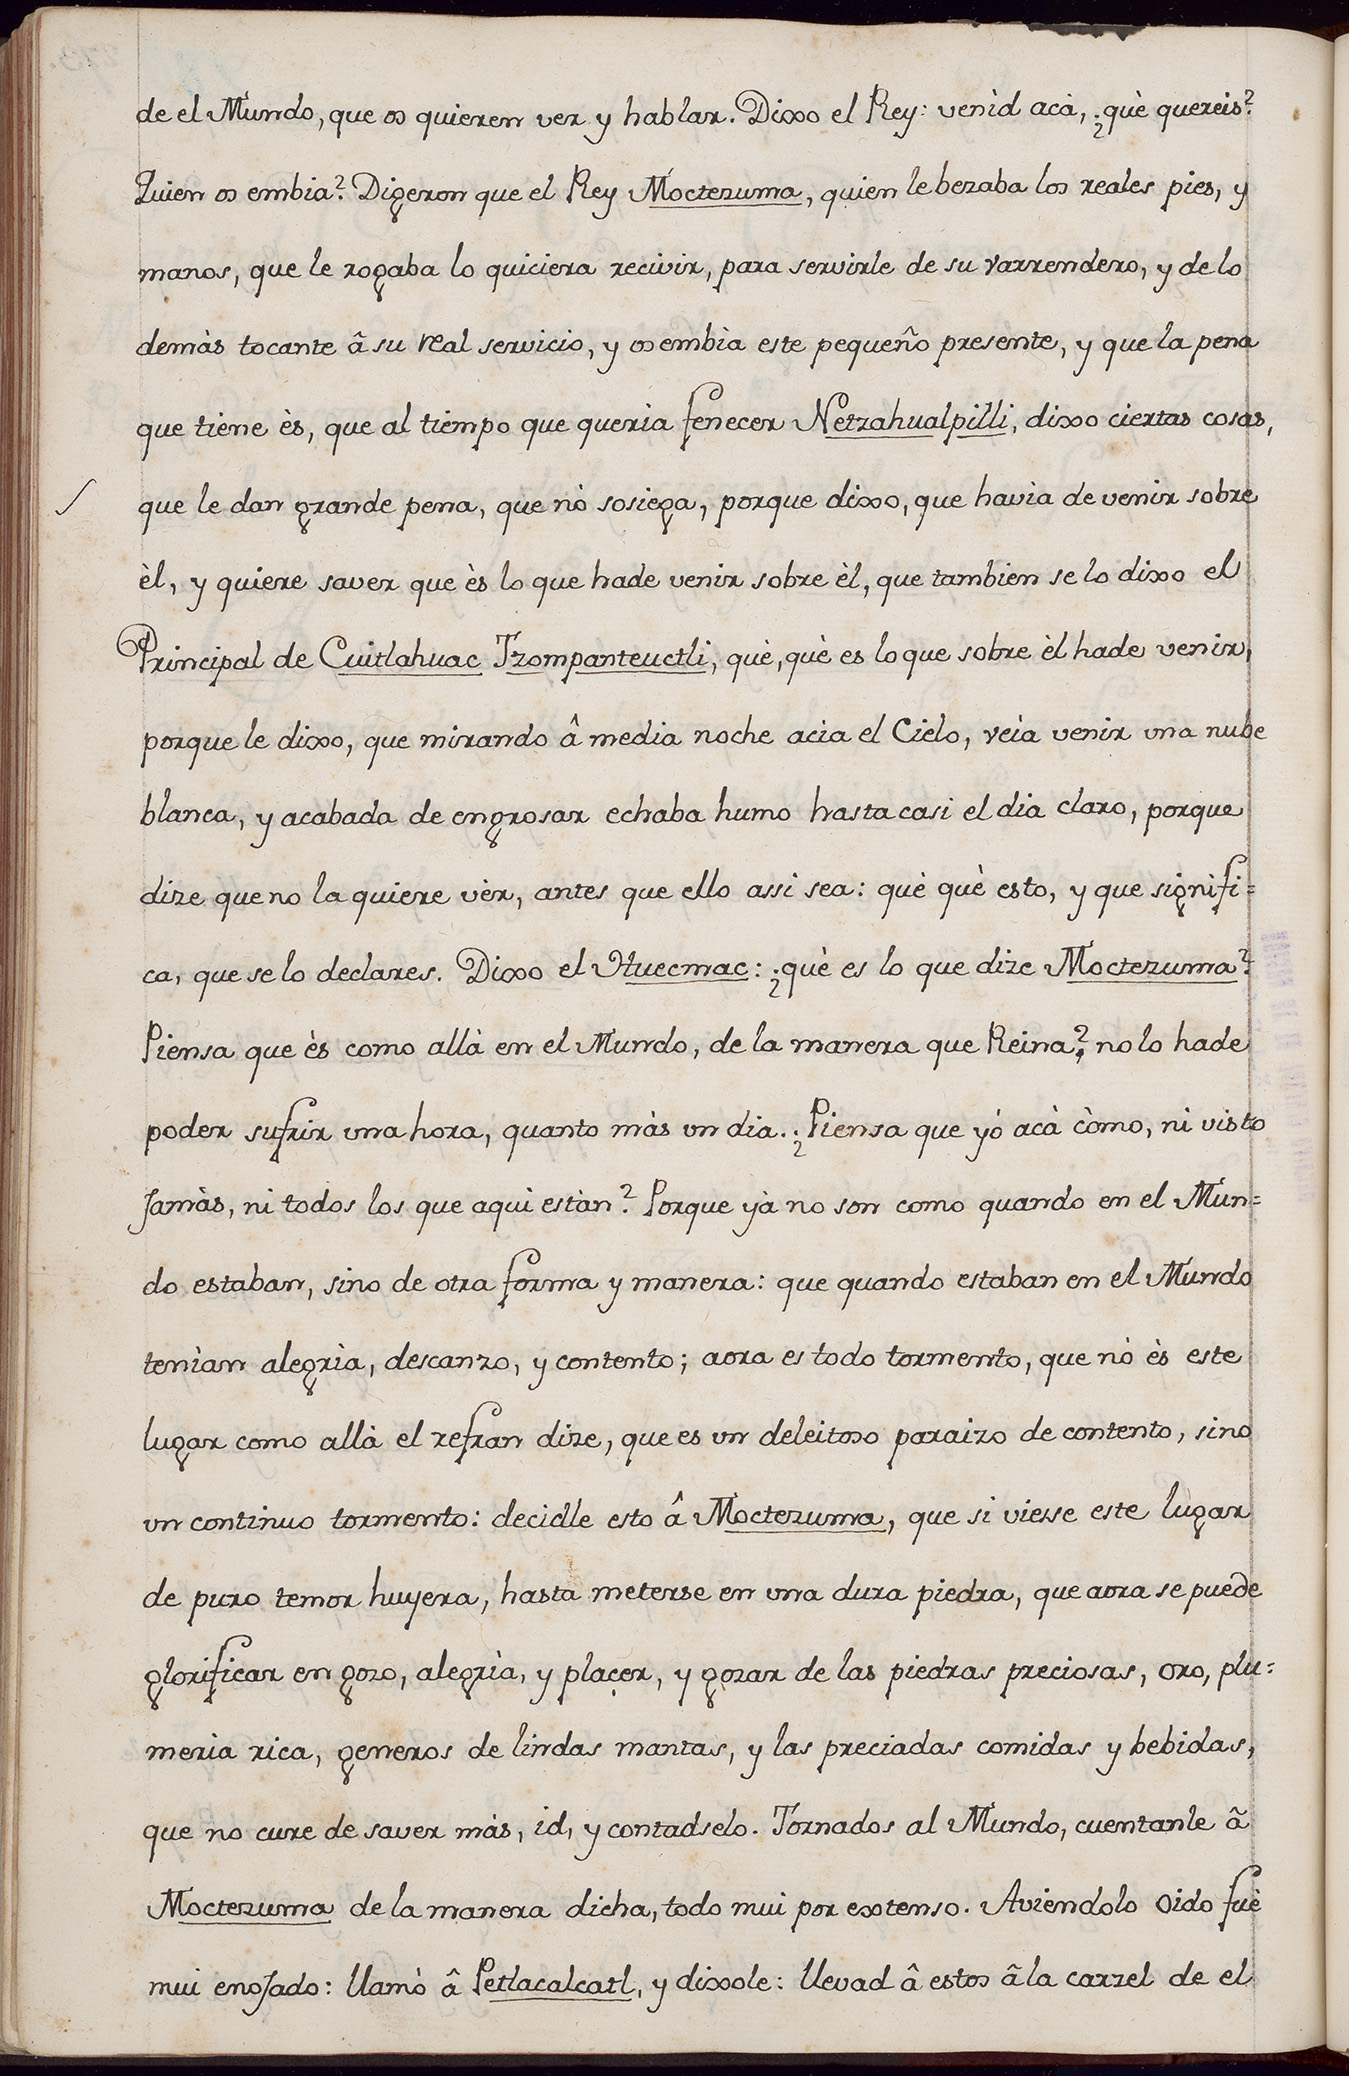 de el Mundo, que os quieren ver y hablar. Dixo el Rey: venid acà, ¿què quereis?
Quien os embia? Digeron que el Rey Moctezuma, quien le bezaba los reales pies, y
manos, que le rogaba lo quiciera recivir, para servirle de su varrendero, y de lo
demàs tocante â su real servicio, y os embìa este pequeño presente, y que la pena
que tiene ès, que al tiempo que queria fenecer Netzahualpilli, dixo ciertas cosas,
que le dan grande pena, que nò sosiega, porque dixo, que havia de venir sobre
èl, y quiere saver que ès lo que hade venir sobre èl, que tambien se lo dixo el
Principal de Cuitlahuac Tzompanteuctli, què, què es lo que sobre èl hade venir,
porque le dixo, que mirando â media noche acia el Cielo, veìa venir una nube
blanca, y acabada de engrosar echaba humo hasta casi el dia claro, porque
dize que no la quiere vèr, antes que ello assi sea: què què esto, y que signifi=
ca, que se lo declares. Dixo el Huecmac: ¿què es lo que dize Moctezuma?
Piensa que ès como allà en el Mundo, de la manera que Reina? no lo hade
poder sufrir una hora, quanto màs un dia. ¿Piensa que yó acà còmo, ni visto
Jamàs, ni todos los que aqui estàn? Porque yà no son como quando en el Mun=
do estaban, sino de otra forma y manera: que quando estaban en el Mundo
tenìan alegrìa, descanzo, y contento; aora es todo tormento, que nò ès este
lugar como allà el refran dize, que es un deleitoso paraizo de contento, sino
un continuo tormento: decidle esto â Moctezuma, que si viesse este lugar
de puro temor huyera, hasta meterse en una dura piedra, que aora se puede
glorificar en gozo, alegrìa, y plaçer, y gozar de las piedras preciosas, oro, plu=
meria rica, generos de lindas mantas, y las preciadas comidas y bebidas,
que no cure de saver màs, id, y contadselo. Tornados al Mundo, cuentanle ã
Moctezuma de la manera dicha, todo mui por extenso. Aviendolo oido fuè
mui enoJado: llamò â Petlacalcatl, y dixole: llevad â estos ã la carzel de el